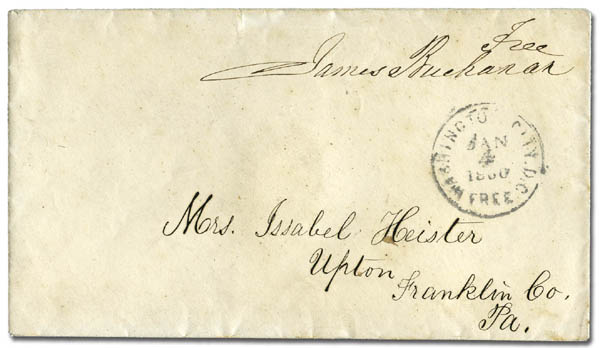 Free
James Buchanan
WASHINGTO CITY, D.C.
JAN
4
1860
FREE
Mrs. Issabel Heister
Upton
Franklin Co.
Pa.